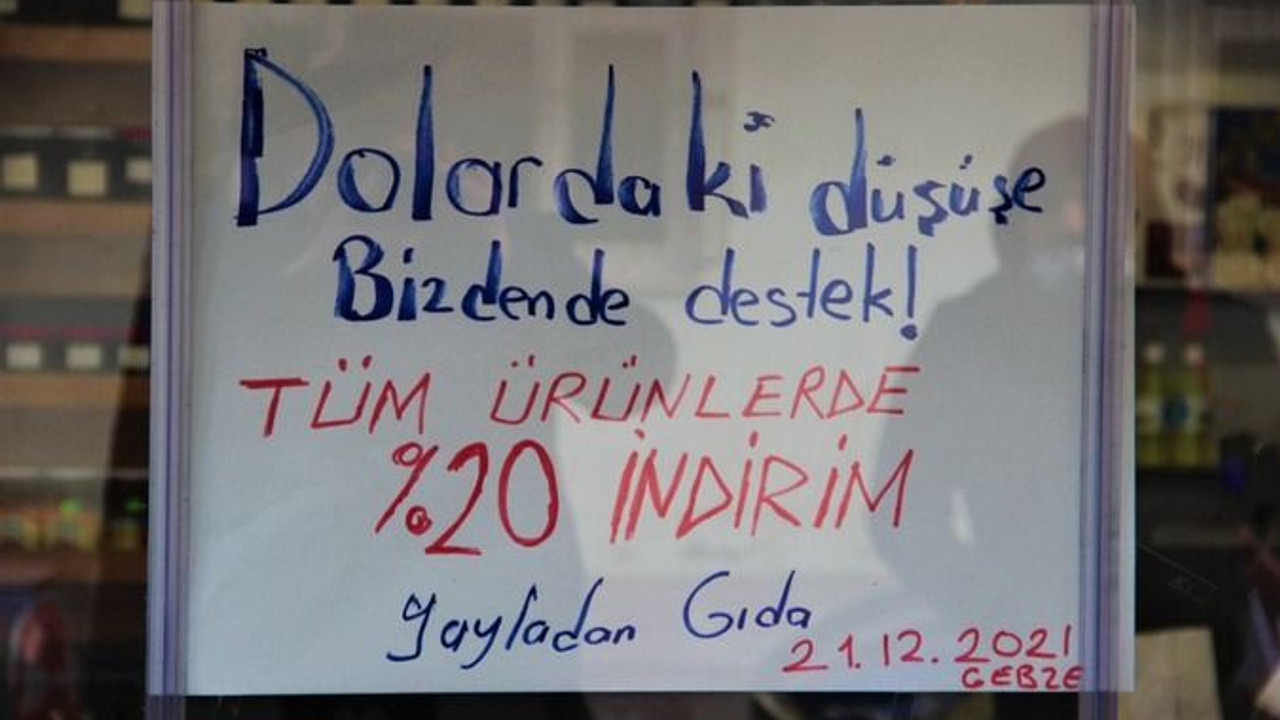 Dolardaki düşüşe
Bizdende destek!
TÜM ÜRÜNLERDE
%20 İNDİRİM
Yayladan Gıda
21.12.2021
GEBZE